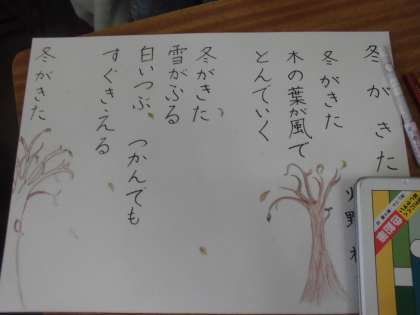 冬がきた
冬がきた
木の葉が風で
とんでいく
冬がきた
雪がふる
白いつぶ つかんでも
すぐきえる
冬がきた
色鉛筆